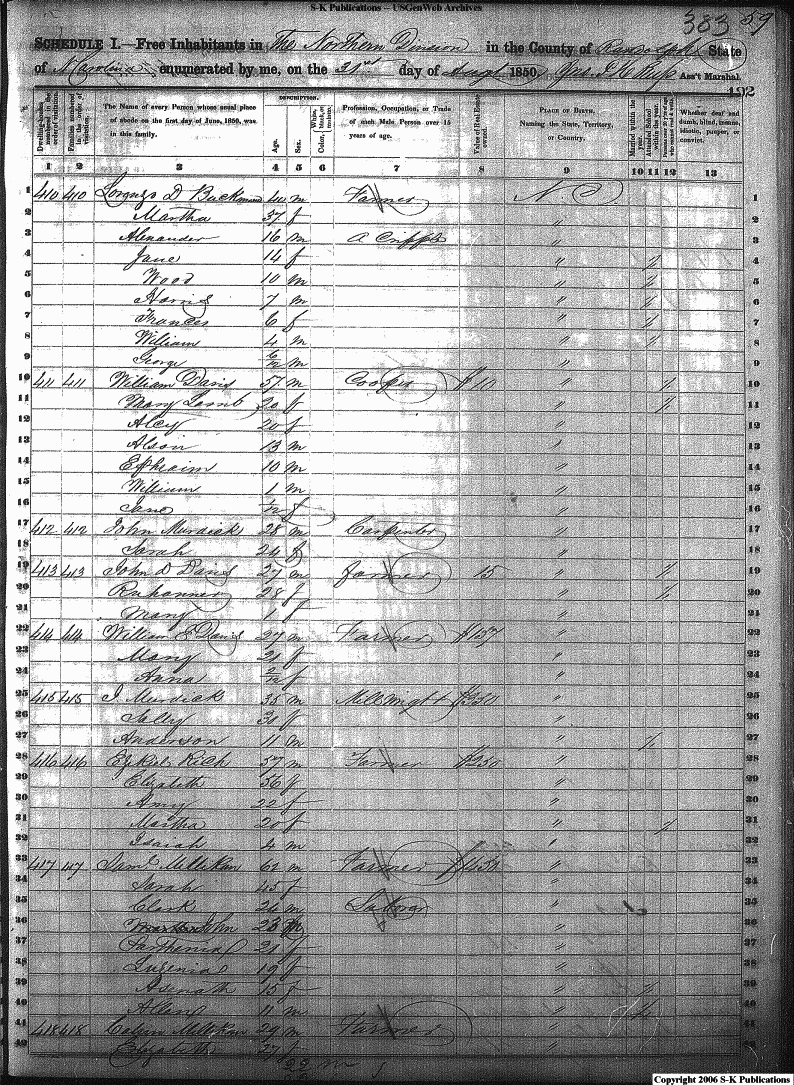 S-K Publications -- USGenWeb Archives
383 59
SCHEDULE I.—Free Inhabitants in The Northern Division in the County of Randolph State
of N Carolina enumerated by me, on the 31st day of Augt 1850. Ass't Marshal.
192
Dwelling-houses numbered in the order of visitation.
Families numbered in the order of visitation.
The Name of every Person whose usual place of abode on the first day of June, 1850, was in this family.
DESCRIPTION.
Age.
Sex.
White, black, or mulatto.
Color,
Profession, Occupation, or Trade of each Male Person over 15 years of age.
Value of Real Estate owned.
PLACE OF BIRTH. Naming the State, Territory, or Country.
Married within the year.
Attended School within the year.
Whether deaf and dumb, blind, insane, idiotic, pauper, or convict.
1 2 3 4 5 6 7 8 9 10 11 12 13
1 410 410 Lorenzo D 40 m Farmer N C 1
2 Martha 37 f " 2
3 Alexander 16 m A Cripple " 3
4 Jane 14 f " / 4
5 Wood 10 m " / 5
6 Harris 7 m " / 6
7 Frances 6 f " / 7
8 William 4 m " / 8
9 George m " 9
10 411 411 William Davis 57 m Cooper $10 " / 10
11 Mary Lamb 20 f " / 11
12 Alcy 20 f " 12
13 Alson 13 m " 13
14 Ephraim 10 m " 14
15 William 1 m " 15
16 Jane f " 16
17 412 412 John Murdick 28 m Carpenter " 17
18 Sarah 24 f " 18
19 413 413 John D Davis 27 m Farmer 15 " / 19
20 Ruhanner 28 f " / 20
21 Mary 1 f " 21
22 414 414 William S Davis 27 m Farmer $157 " 22
23 Mary 21 f " 23
24 Anna 2/12 f " 24
25 415 415 J. Murdick 35 m Millwright $350 " 25
26 Selby 31 f " 26
27 Anderson 11 m " / 27
28 416 416 Ezekiel Rich 57 m Farmer $250 " 28
29 Elizabeth 56 f " 29
30 Amy 22 f " 30
31 Martha 20 f " / 31
32 Isaiah 4 m " 32
33 417 417 Saml Millikan 62 m Farmer $450 " 33
34 Sarah 45 f " 34
35 Clark 24 m " 35
36 John 23 m " 36
37 Parthenia 21 f " 37
38 Luzenia 19 f " 38
39 Asenath 15 f " / 39
40 Allen 11 m " / 40
41 418 418 Calvin Millikan 29 m Farmer " 41
Elizabeth 27 f "
22 m
Copyright 2006 S-K Publications